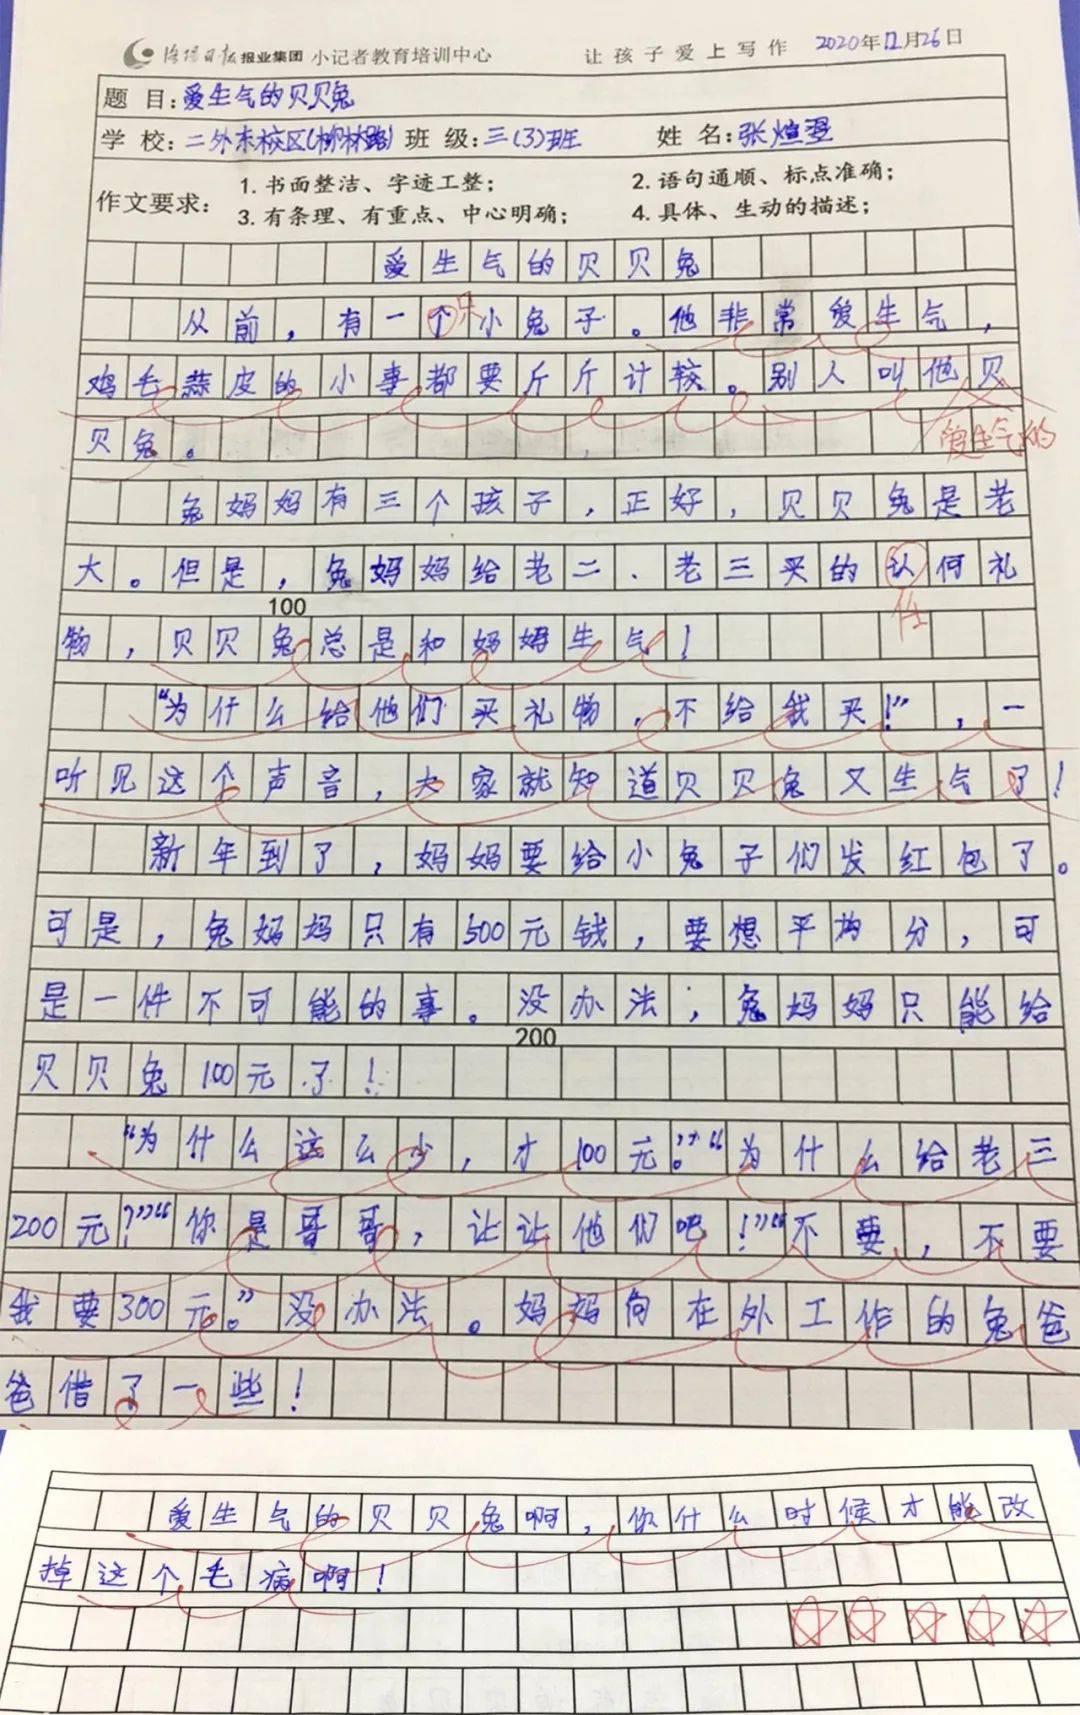 洛阳日报报业集团 小记者教育培训中心 让孩子爱上写作 2020年12月26日
题 目：爱生气的贝贝兔
学 校：二外东校区(柳林路) 班 级：三(3)班 姓 名：张煊翌
作文要求：
1.书面整洁、字迹工整； 2.语句通顺、标点准确；
3.有条理、有重点、中心明确； 4.具体、生动的描述；
爱生气的贝贝兔
从前，有一个只小兔子。他非常爱生气，
鸡毛蒜皮的小事都要斤斤计较。别人叫他贝
贝兔。 爱生气的
兔妈妈有三个孩子，正好，贝贝兔是老
大。但是，兔妈妈给老二、老三买的认何礼
任
100
物，贝贝兔总是和妈妈生气！
“为什么给他们买礼物，不给我买！”，一
听见这个声音，大家就知道贝贝兔又生气了！
新年到了，妈妈要给小兔子们发红包了。
可是，兔妈妈只有500元钱，要想平均分，可
是一件不可能的事。没办法；兔妈妈只能给
200
贝贝兔100元了！
“为什么这么少，才100元。”“为什么给老三
200元？”“你是哥哥，让让他们吧！”“不要，不要
我要300元。”没办法。妈妈向在外工作的兔爸
爸借了一些！
爱生气的贝贝兔啊，你什么时候才能改
掉这个毛病啊！